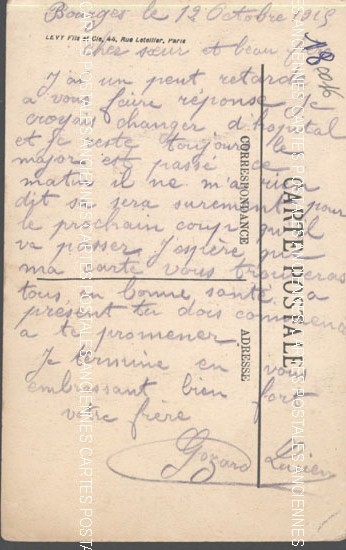 Bourges le 12 Octobre 1915
LEVY Fils et Cie, 44, Rue Letellier, Paris
cher sœur et beau
J'ai un peut retardé
a vous faire réponse je
croyais changer d'hopital
et je reste toujours le
major est passé ce
matin il ne m'a rien
dit se sera surement pour
le prochain coup qu'il
va passer J'espère que
ma carte vous trouveras
tous en bonne santé a
présent tu dois commencer
a te promener
Je termine en vous
embrassant bien fort
votre frère
Lucien
CARTE POSTALE
CORRESPONDANCE
ADRESSE
CARTES POSTALES ANCIENNES